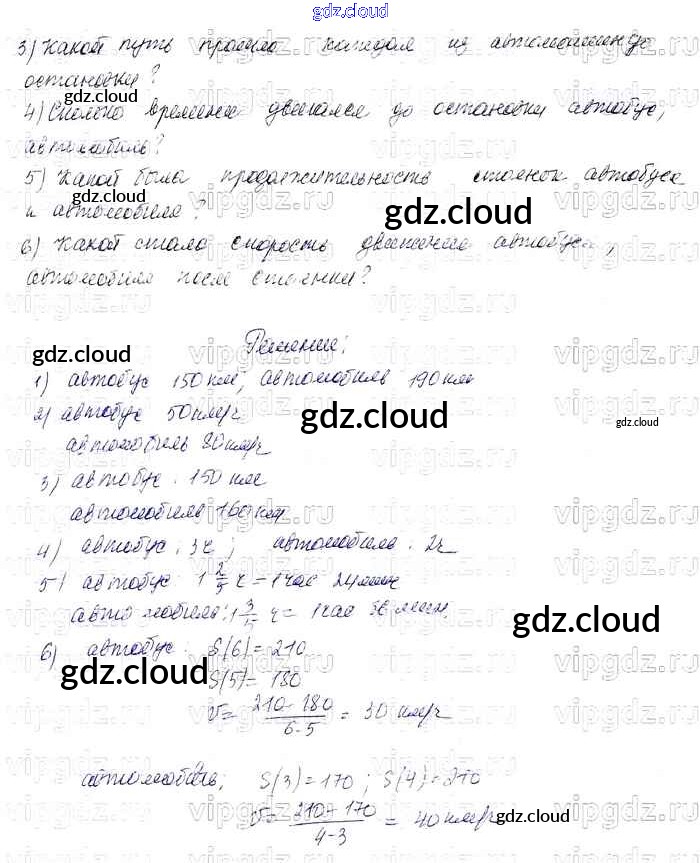 gdz.cloud
3) Какой путь прошла каждая из автомашин до
остановки?
gdz.cloud
4) Сколько времени двигался до остановки автобус,
автомобиль?
5) Какой была продолжительность стоянок автобуса
gdz.cloud
и автомобиля?
gdz.cloud
6) Какой стала скорость движения автобуса,
автомобиля после стоянки?
Решение:
gdz.cloud
vipgdz.ru
1) автобус 150 км; автомобиль 190 км
2) автобус 50 км/ч
gdz.cloud
gdz.cloud
автомобиль 80 км/ч
3) автобус: 150 км
автомобиль 160 км
4) автобус: 3ч; автомобиль: 2ч
5) автобус 1 2/5 ч = 1 час 24 мин
автомобиль: 1 ч = 1 час мин.
gdz.cloud
6) автобус: S(6) = 210
gdz.cloud
S(5) = 180
V = (210 - 180)/(6-5) = 30 км/ч
автомобиль; S(3) = 170; S(4) = 210
V = (210 - 170)/(4-3) = 40 км/ч
gdz.cloud